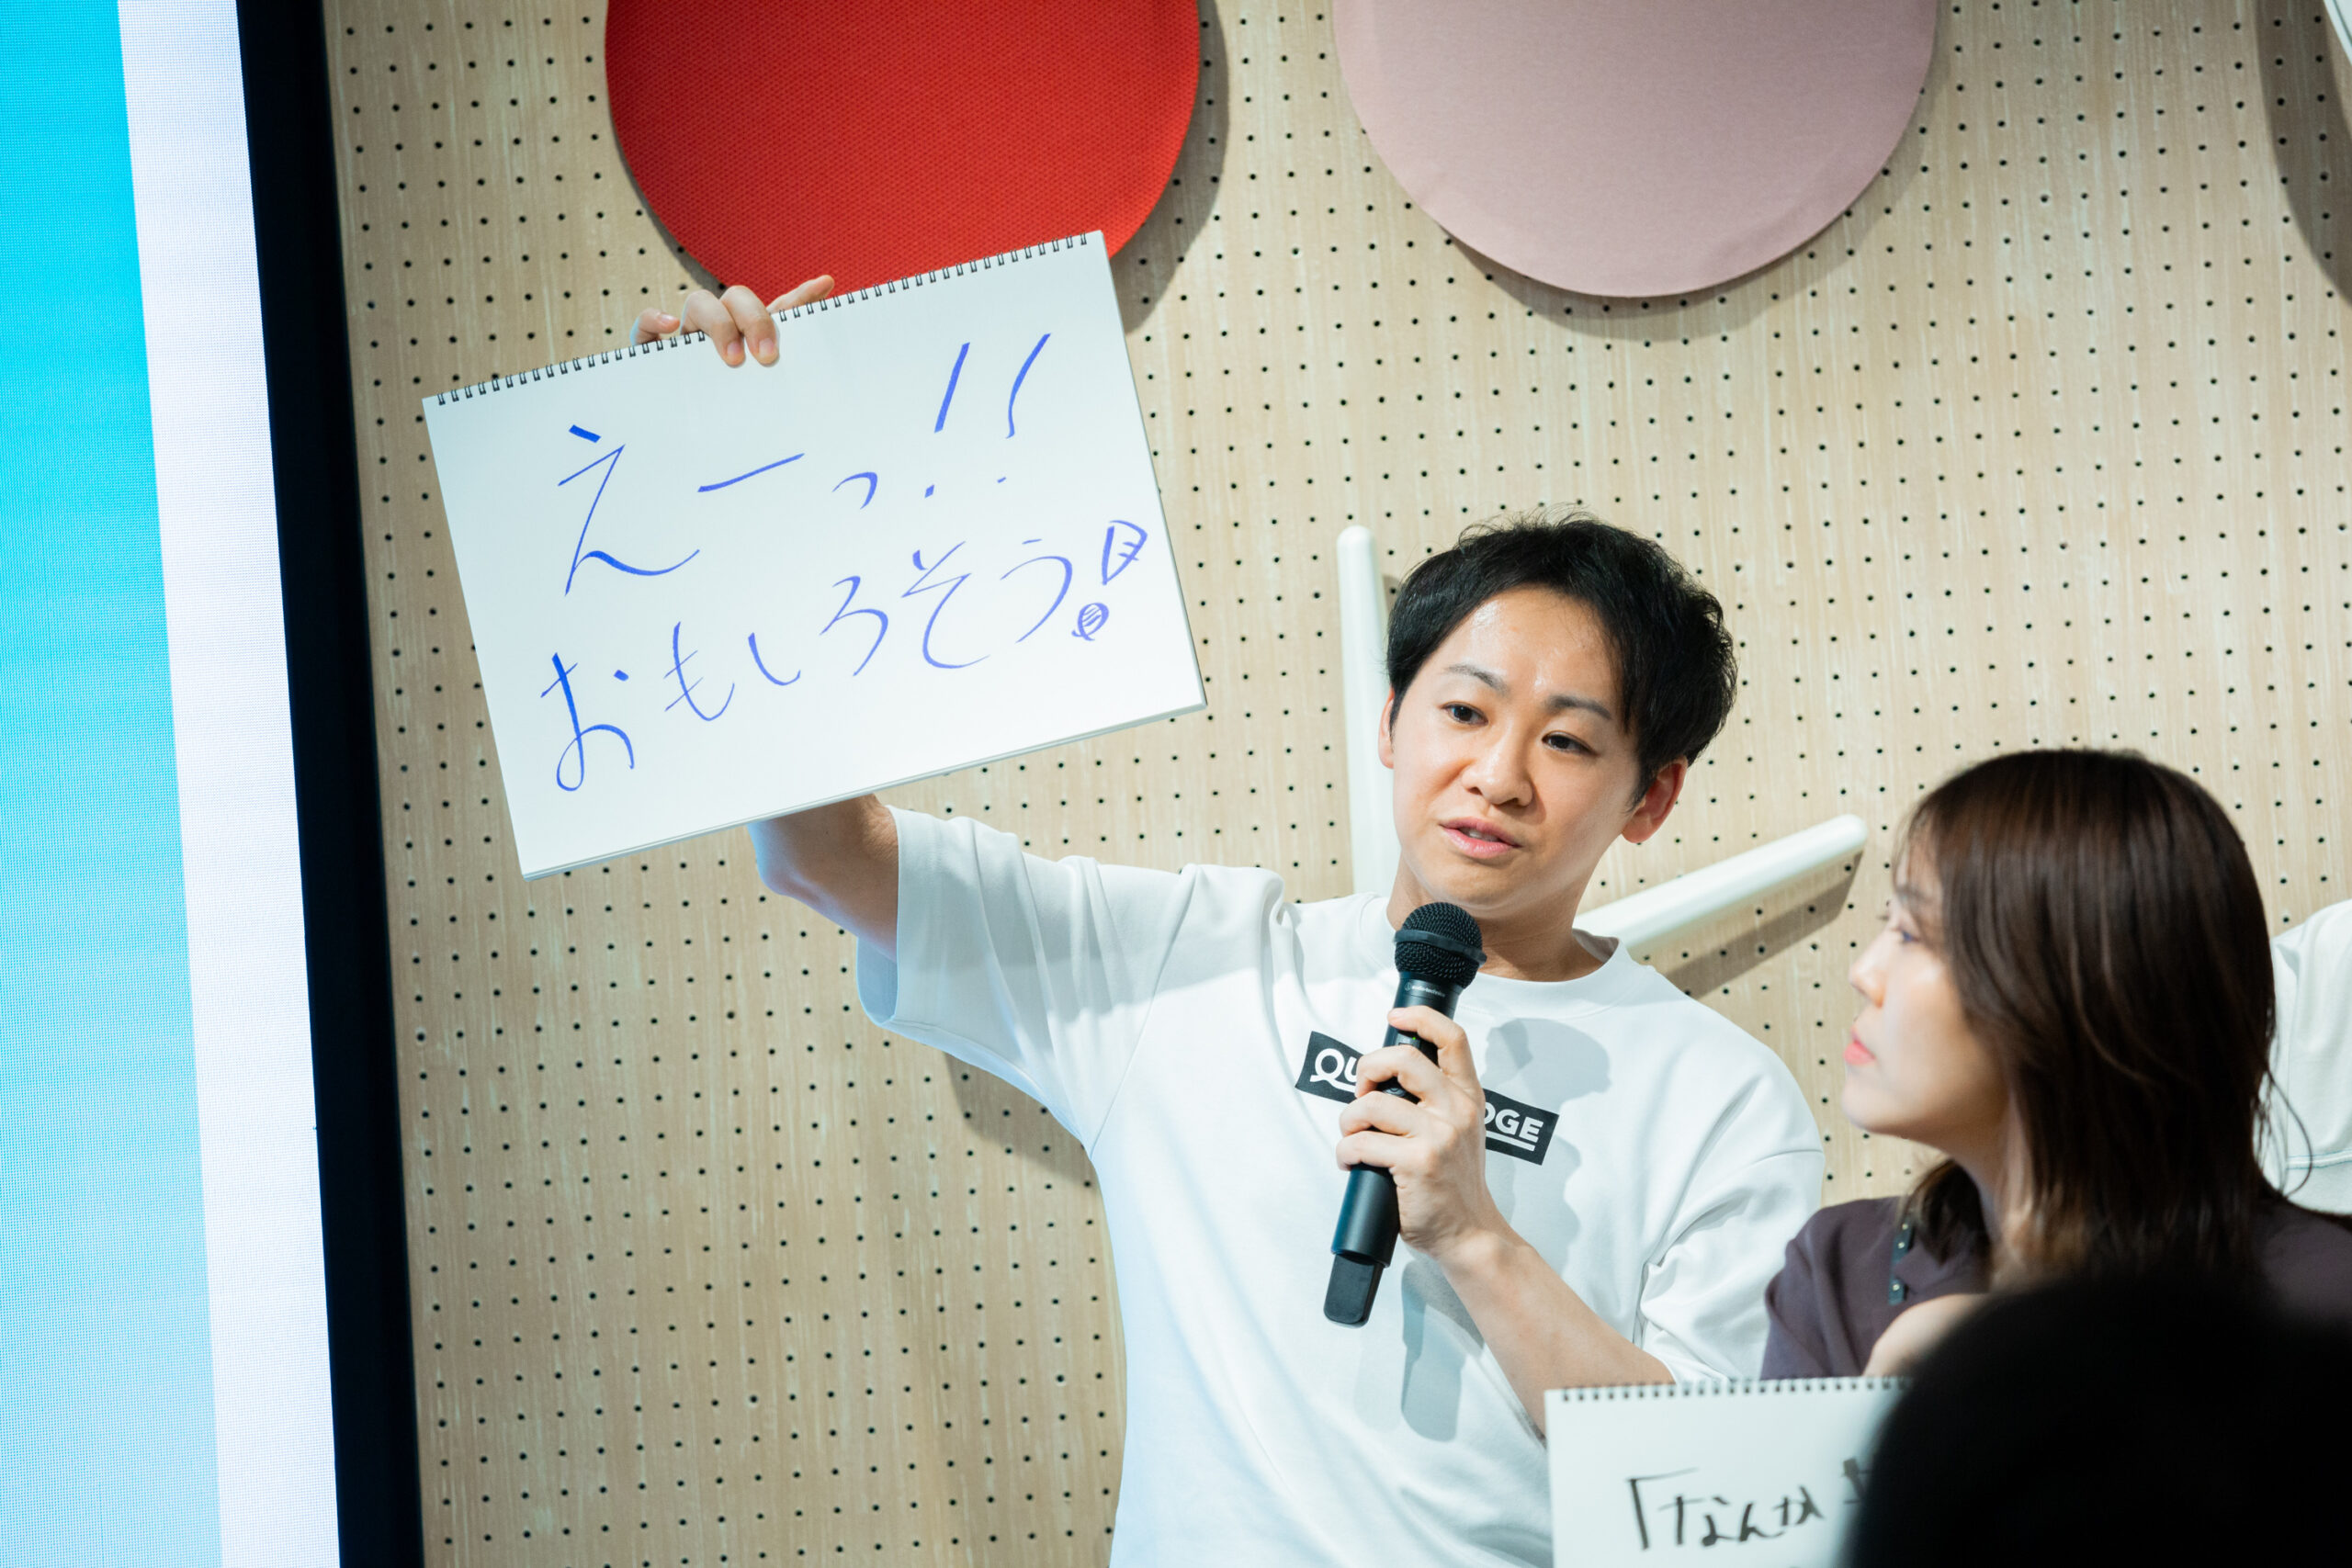 えーっ!!
おもしろそう!
QU
DGE
「なんか